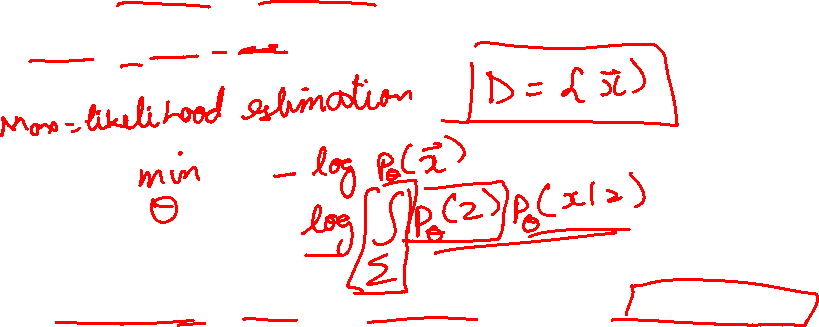 Max-likelihood estimation D = {x⃗}
min - log Pθ(x⃗)
θ
log ∫ Pθ(z) Pθ(x|z)
Σ